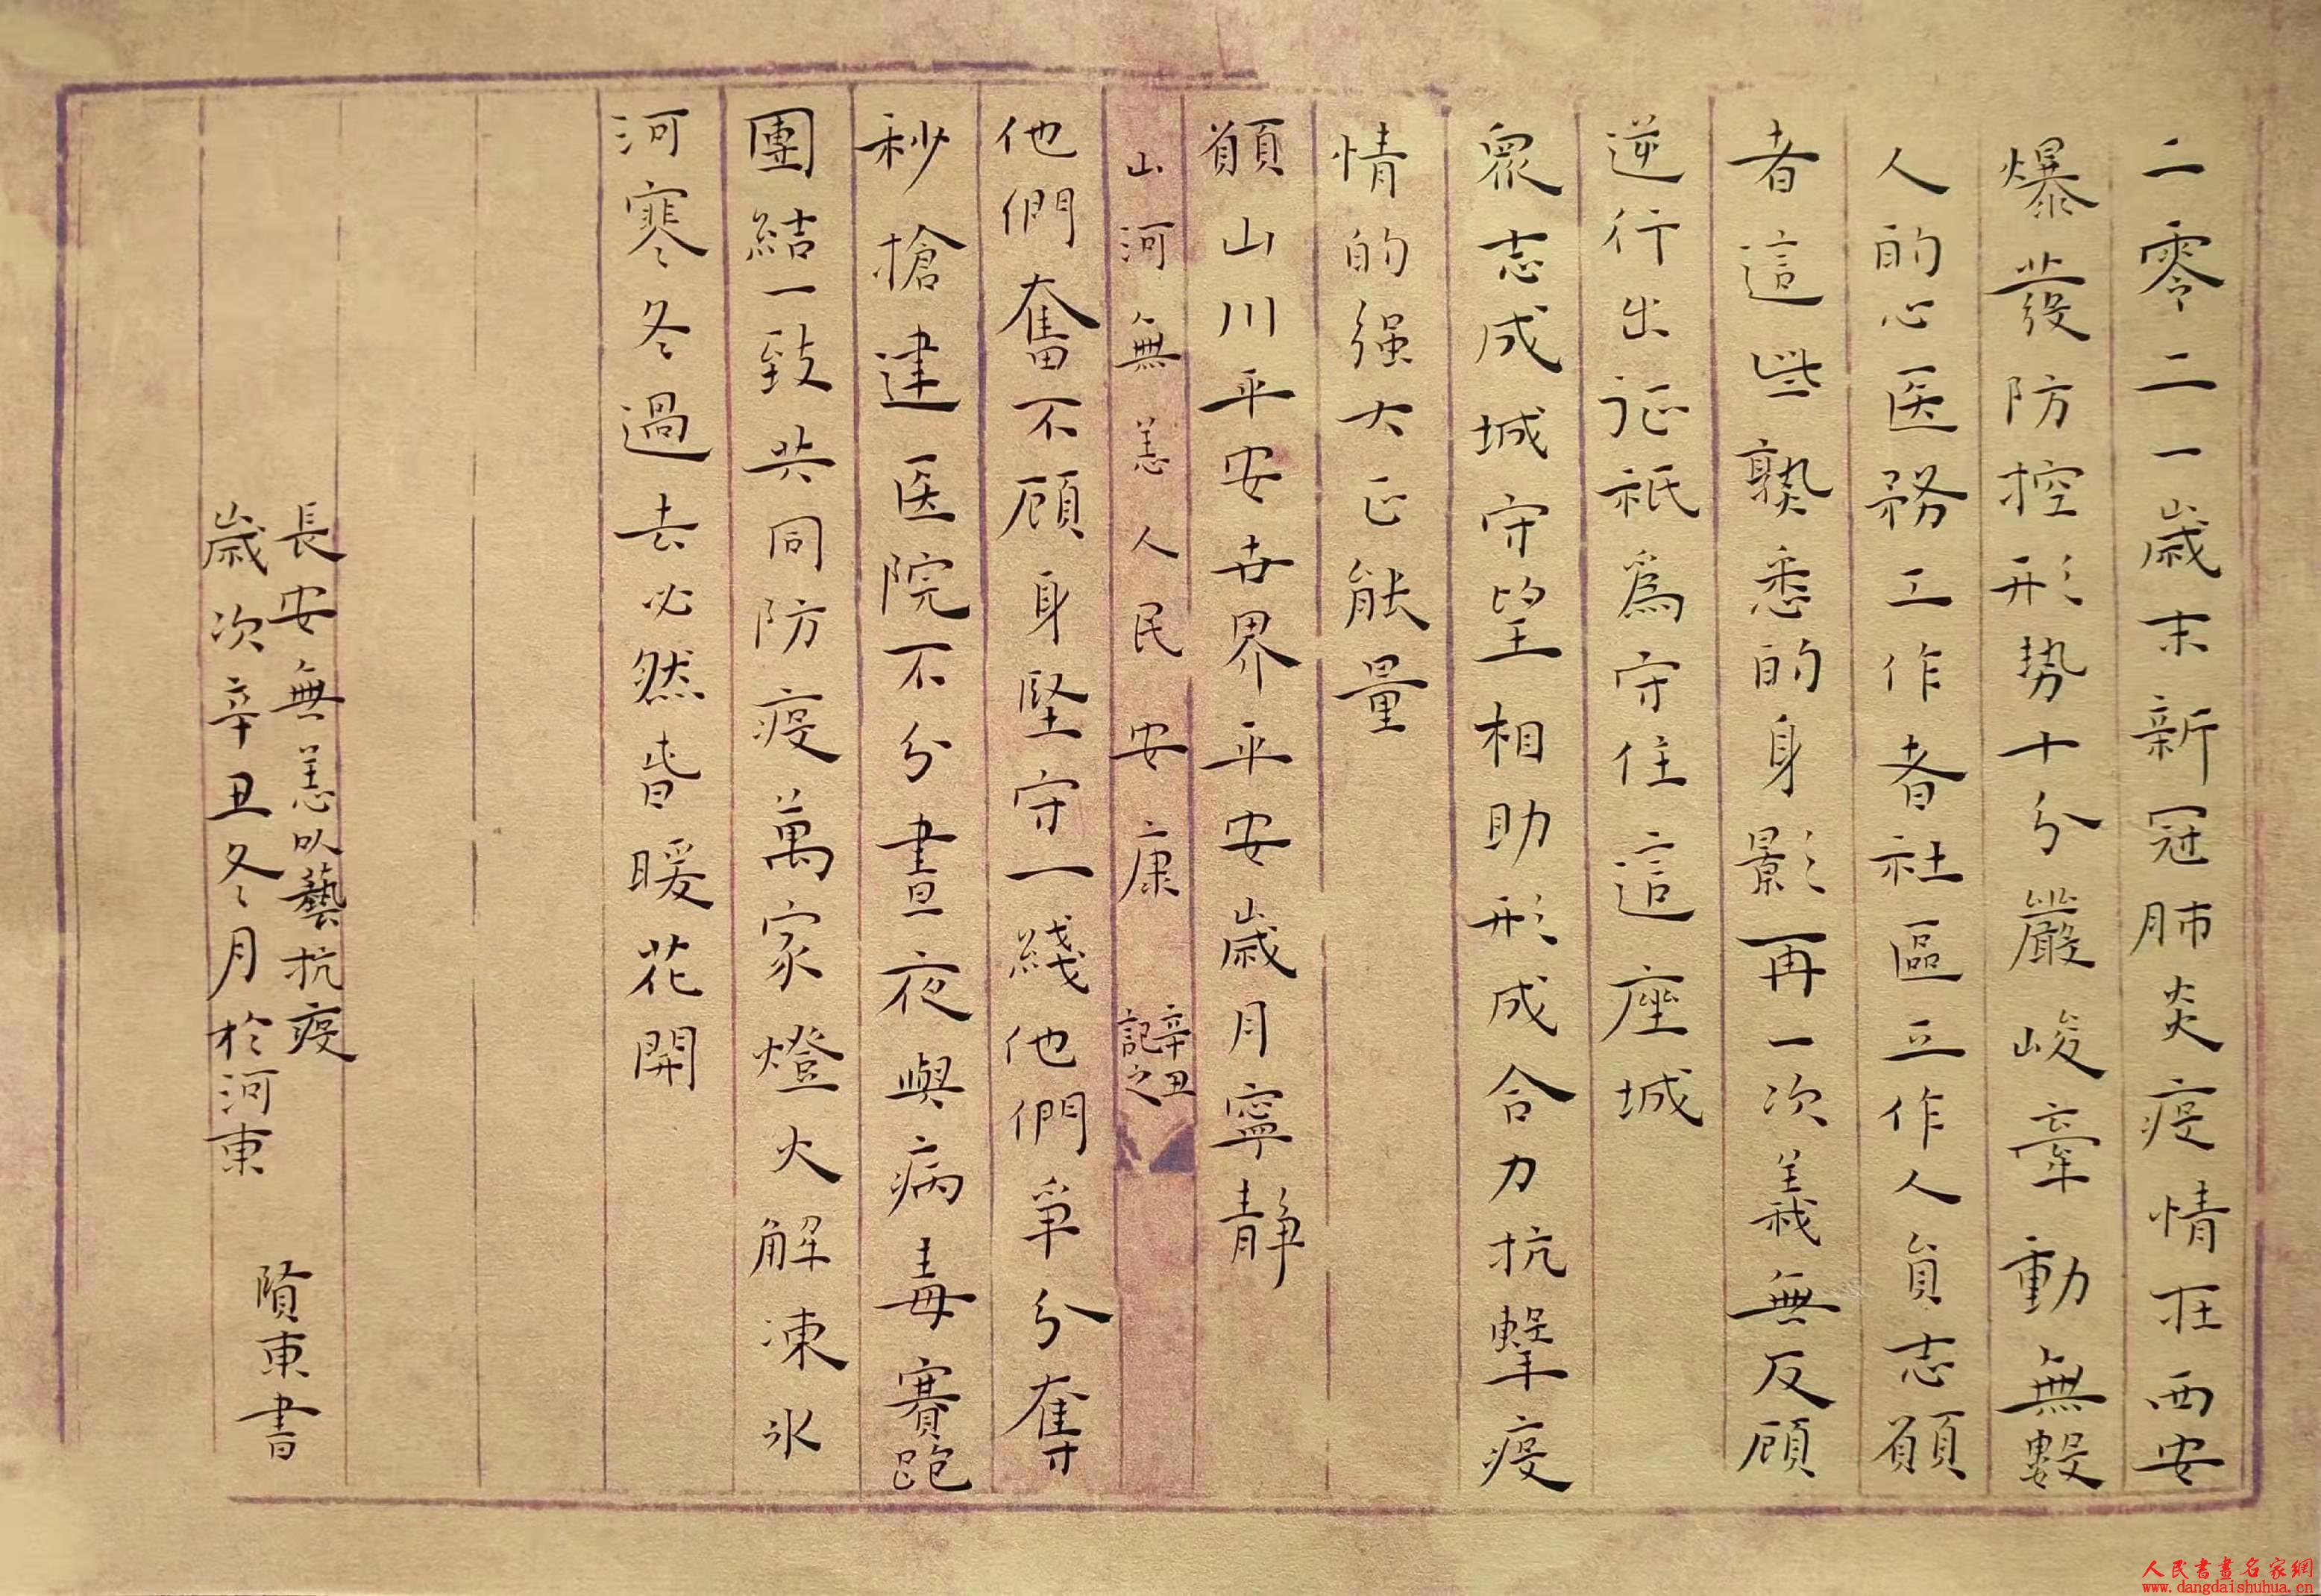 二零二一歲末新冠肺炎疫情在西安
爆發防控形势十分嚴峻牽動無數
人的心医務工作者社區工作人員志願
者這些熟悉的身影再一次義無反顧
逆行出征祇爲守住這座城
眾志成城守望相助形成合力抗擊疫
情的强大正能量
願山川平安世界平安歲月寧静
山河無恙人民安康 辛丑
記之
他們奮不顧身堅守一綫他們爭分奪
秒搶建医院不分晝夜與病毒賽跑
團結一致共同防疫萬家燈火解凍冰
河寒冬過去必然春暖花開
長安無恙以藝抗疫
歲次辛丑冬月於河東
賢東書
人民書畫名家網
www.dangdaishuhua.cn